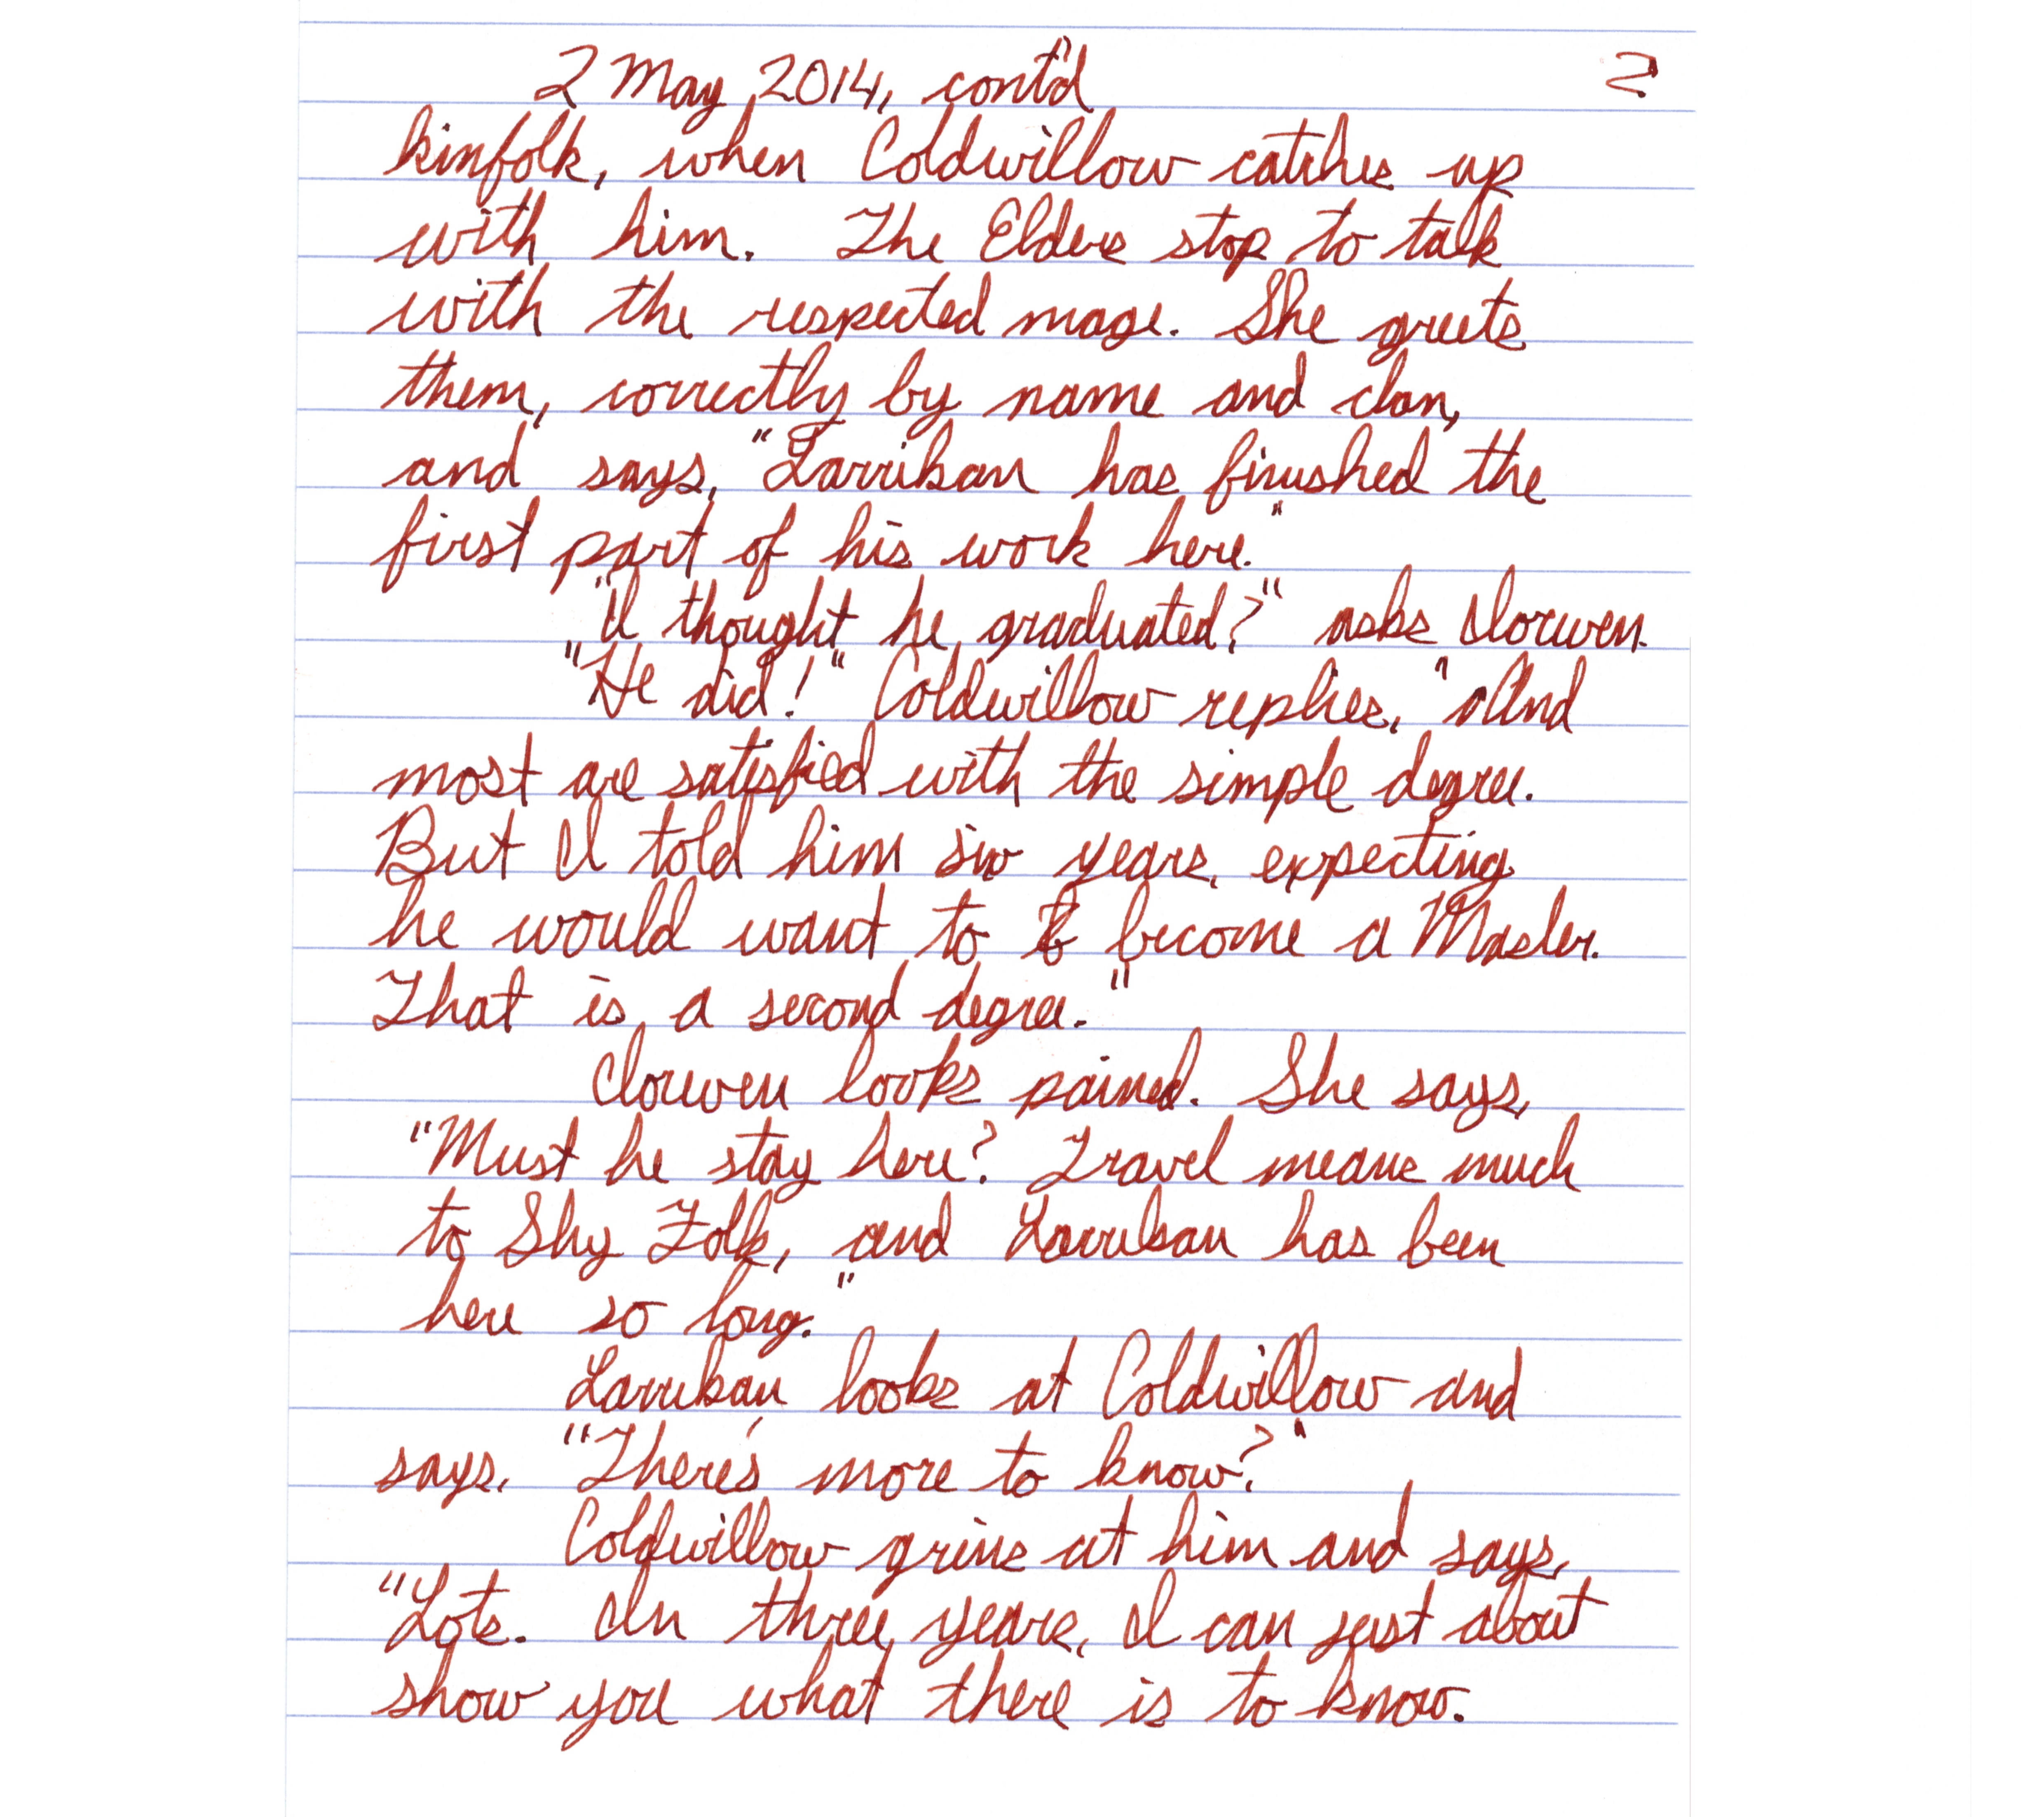 2 May 2014, cont'd 2
kinfolk, when Coldwillow catches up
with him. The Elders stop to talk
with the respected mage. She greets
them, correctly by name and clan,
and says, "Larriban has finished the
first part of his work here."
"I thought he graduated?" asks Iorwen.
"He did!" Coldwillow replies, "And
most are satisfied with the simple degree.
But I told him six years, expecting
he would want to become a Master.
That is a second degree."
Iorwen looks pained. She says,
"Must he stay here? Travel means much
to Shy Folk, and Larriban has been
here so long."
Larriban looks at Coldwillow and
says, "There's more to know?"
Coldwillow grins at him and says,
"Lots. In three years, I can just about
show you what there is to know.